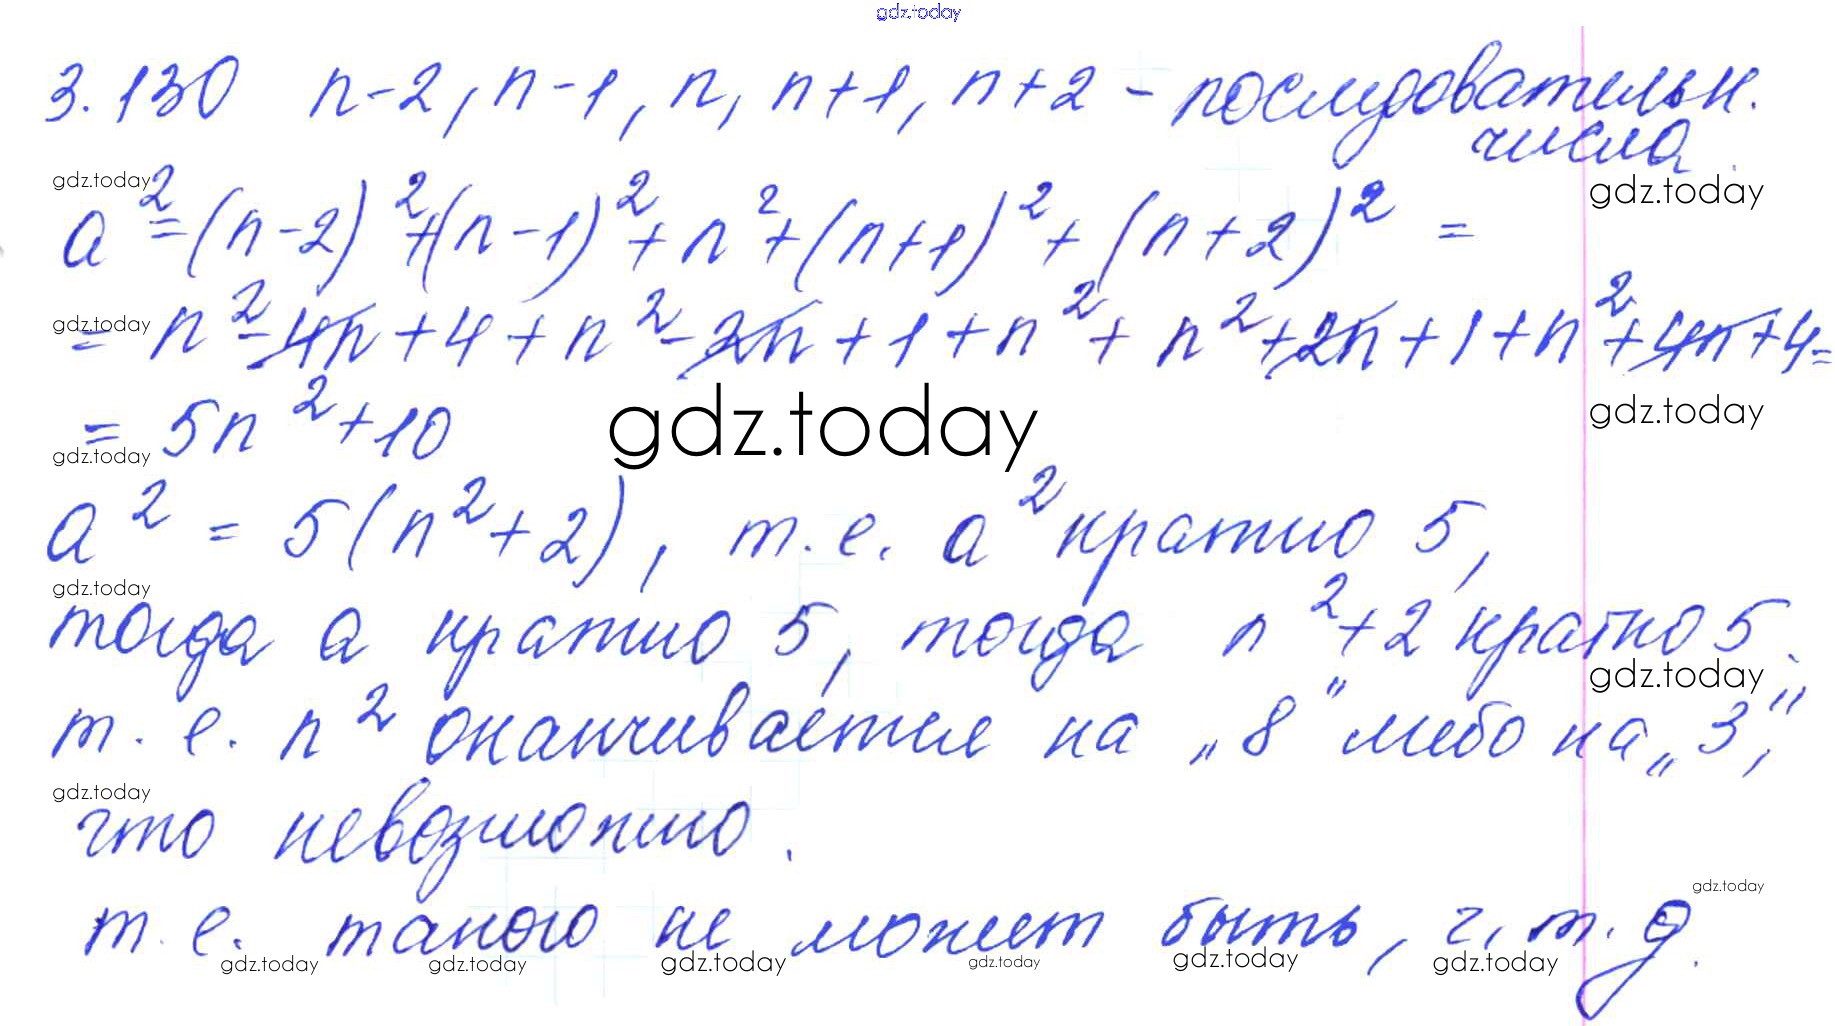 gdz.today
3.130 n-2, n-1, n, n+1, n+2 - последовательн.
числа.
gdz.today gdz.today
a² = (n-2)² + (n-1)² + n² + (n+1)² + (n+2)² =
gdz.today
= n² - 4n + 4 + n² - 2n + 1 + n² + n² + 2n + 1 + n² + 4n + 4 =
= 5n² + 10 gdz.today gdz.today
gdz.today
a² = 5(n² + 2), т.е. a² кратно 5,
gdz.today
тогда a кратно 5, тогда n² + 2 кратно 5.
gdz.today
т.е. n² оканчивается на „8" либо на „3",
gdz.today
что невозможно.
gdz.today
т.е. такого не может быть, ч.т.д.
gdz.today gdz.today gdz.today gdz.today gdz.today gdz.today